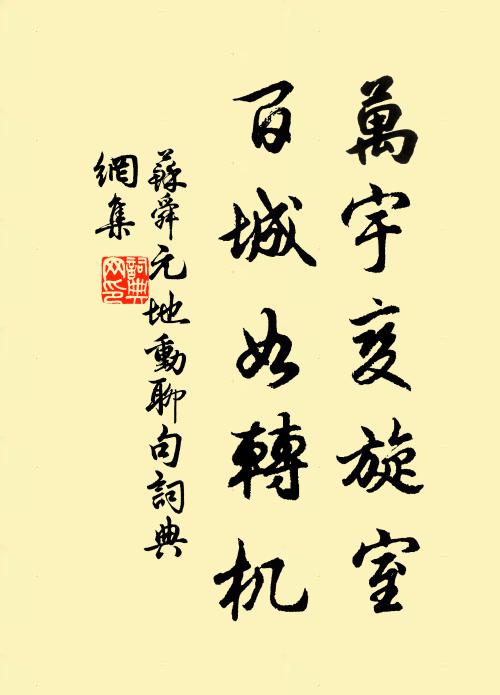 萬宇变旋室
百城如轉机
蘇舜元地動聊句詞典
網集
詞典
网印